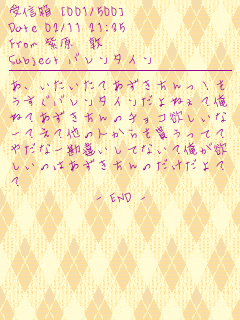 受信箱 [001/500]
Date 02/11 21:35
From 紫原 敦
Subject バレンタイン
あ、いたいたあずきちんっ！も
うすぐバレンタインだよねえて俺
ねてあずきちんのチョコ欲しいな
ーてえて他の人からも貰うってて
やだなー勘違いしてないて俺が欲
しいのはあずきちんのだけだよて
て
- END -